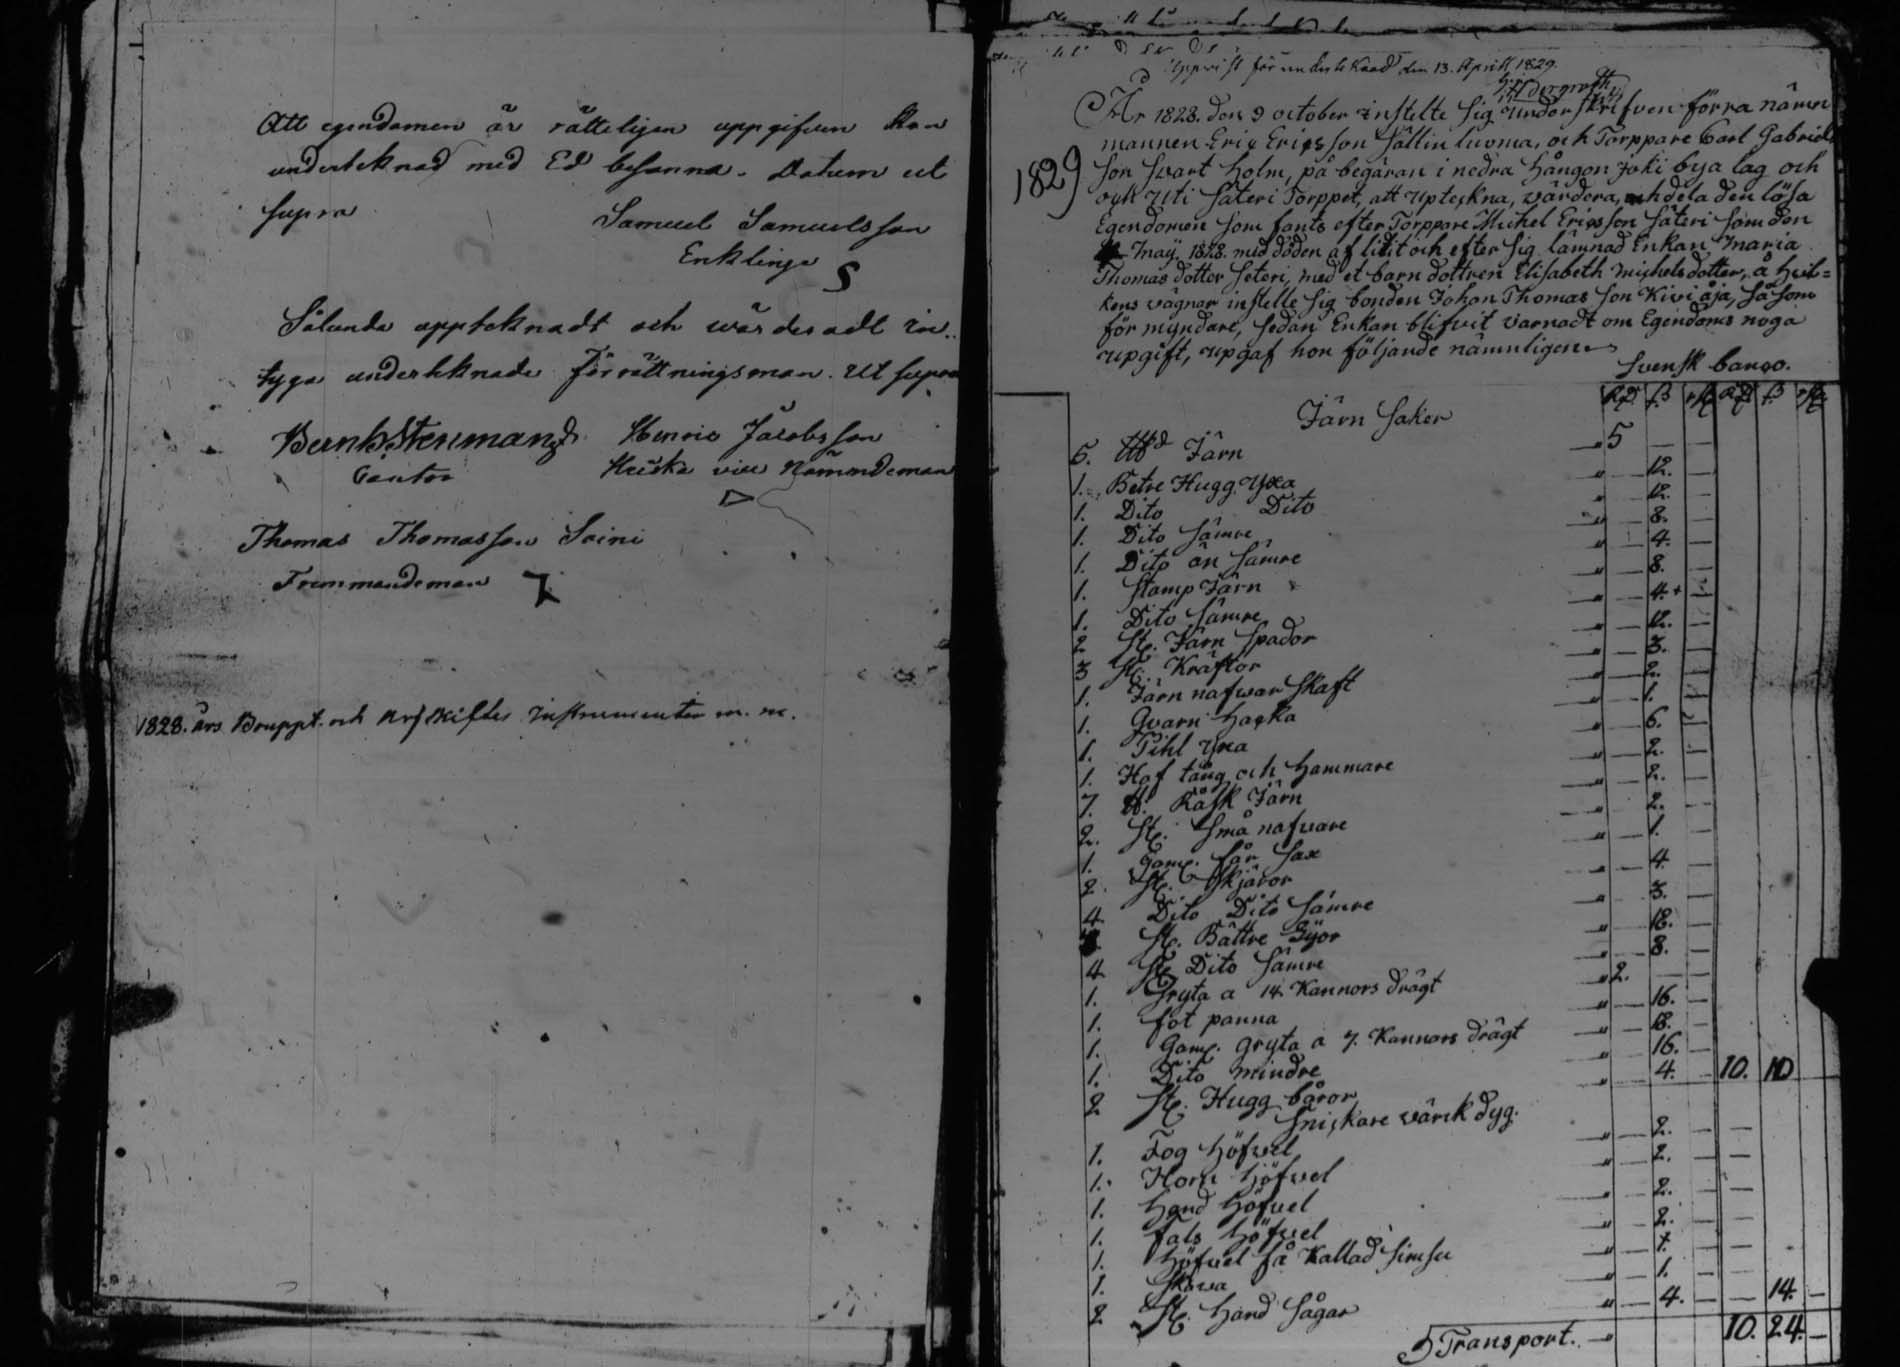 Att egendomen är rätteligen uppgifven kan
underteknad med Ed besanna. Datum ut
supra
Samuel Samuelsson
Enklinge
S
Sålunda uppteknadt och värderadt in-
tyga underteknade Förrättningsman. Ut supra
Stenmang Henric Jacobsson
Cantor Heiska vice Nämndeman
Thomas Thomasson Soini
Fremmandeman
1828. års Bouppt. och Arfskiftes instrumenter m. m.
den 13. April 1829.
År 1828. den 9 october instelte sig underskrifven förra nämn
mannen Eric Ericsson Sållin luoma, och Torppare Carl Gabriel
1829
son Svart holm, på begäran i nedra Hångon Joki bya lag och
och uti Säteri Torppet, att upteckna, värdera, och dela den lösa
Egendomen som fants efter Torppare Michel Ericsson Säteri som den
May. 1828. med döden af lidit och efter sig lämnad Enkan Maria
Thomas dotter Seteri, med et barn dottren Elisabeth Michels dotter, å hvil=
kens vägnar instelle sig bonden Johan Thomas son Kivi åja, så som
för myndare, sedan Enkan blifvit varnadt om Egendoms noga
upgift, upgaf hon följande nämnligen
Svensk banco.
Järn Saker
5. Järn 5
1. Betre Hugg Yxa 12.
1. Dito Dito 12.
1. Dito Sämre 8.
1. Dito än Sämre 4.
1. Stamp Järn 8.
1. Dito Sämre 4.
2 St. Järn Spador 12.
3 St. Kräftor 3.
1. Järn nafwar Skaft 2.
1. Qvarn Hacka 1.
1. Pihl Yxa 6.
1. Hof tång och Hammare 2.
7. Råsk Järn 2.
2. St. Små nafware 2.
1. Gam. får Sax 1.
2 St. Skjäror 4
4 Dito Dito Sämre 3.
St. Bättre 18.
4 St. Dito Sämre 8.
1. Gryta a 14 Kannors drägt 2.
1. fot panna 16.
1. Gam. gryta a 7. Kannors drägt 18.
1. Dito mindre 16.
2 St. Hugg båror 4. 10. 10
Snickare värck dyg.
1. Fog Höfvel 2.
1. Horn Höfvel 2.
1. Hand Höfvel 2.
1. fals Höfvel 2.
1. Höfvel så Kallad Simsu 1.
1. Skava 1.
2 St. Hand Sågar 4. 14.
Transport. 10. 24.